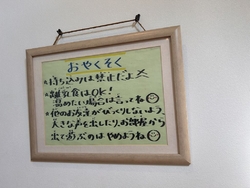 おやくそく
★持ち込みは禁止だよ
★離乳食はOK!
温めたい場合は言ってね
★他のお客さんがびっくりしないよう
大きな声を出したり、お部屋から
出て遊ぶのはやめようね